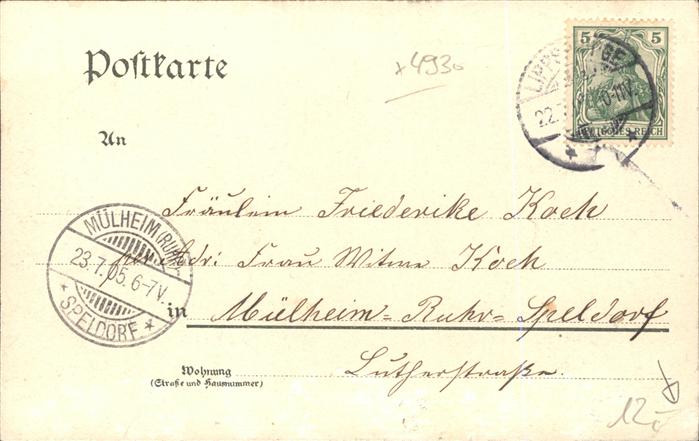 Postkarte
x 4930
5 5
DEUTSCHES REICH
22.7. 10-11V.
An
Fräulein Friederike Koch
MÜLHEIM (RUHR)
23.7.05.6-7V.
* SPELDORF *
per Adr: Frau Witwe Koch
in Mülheim-Ruhr-Speldorf
Wohnung
(Straße und Hausnummer)
Lutherstraße.